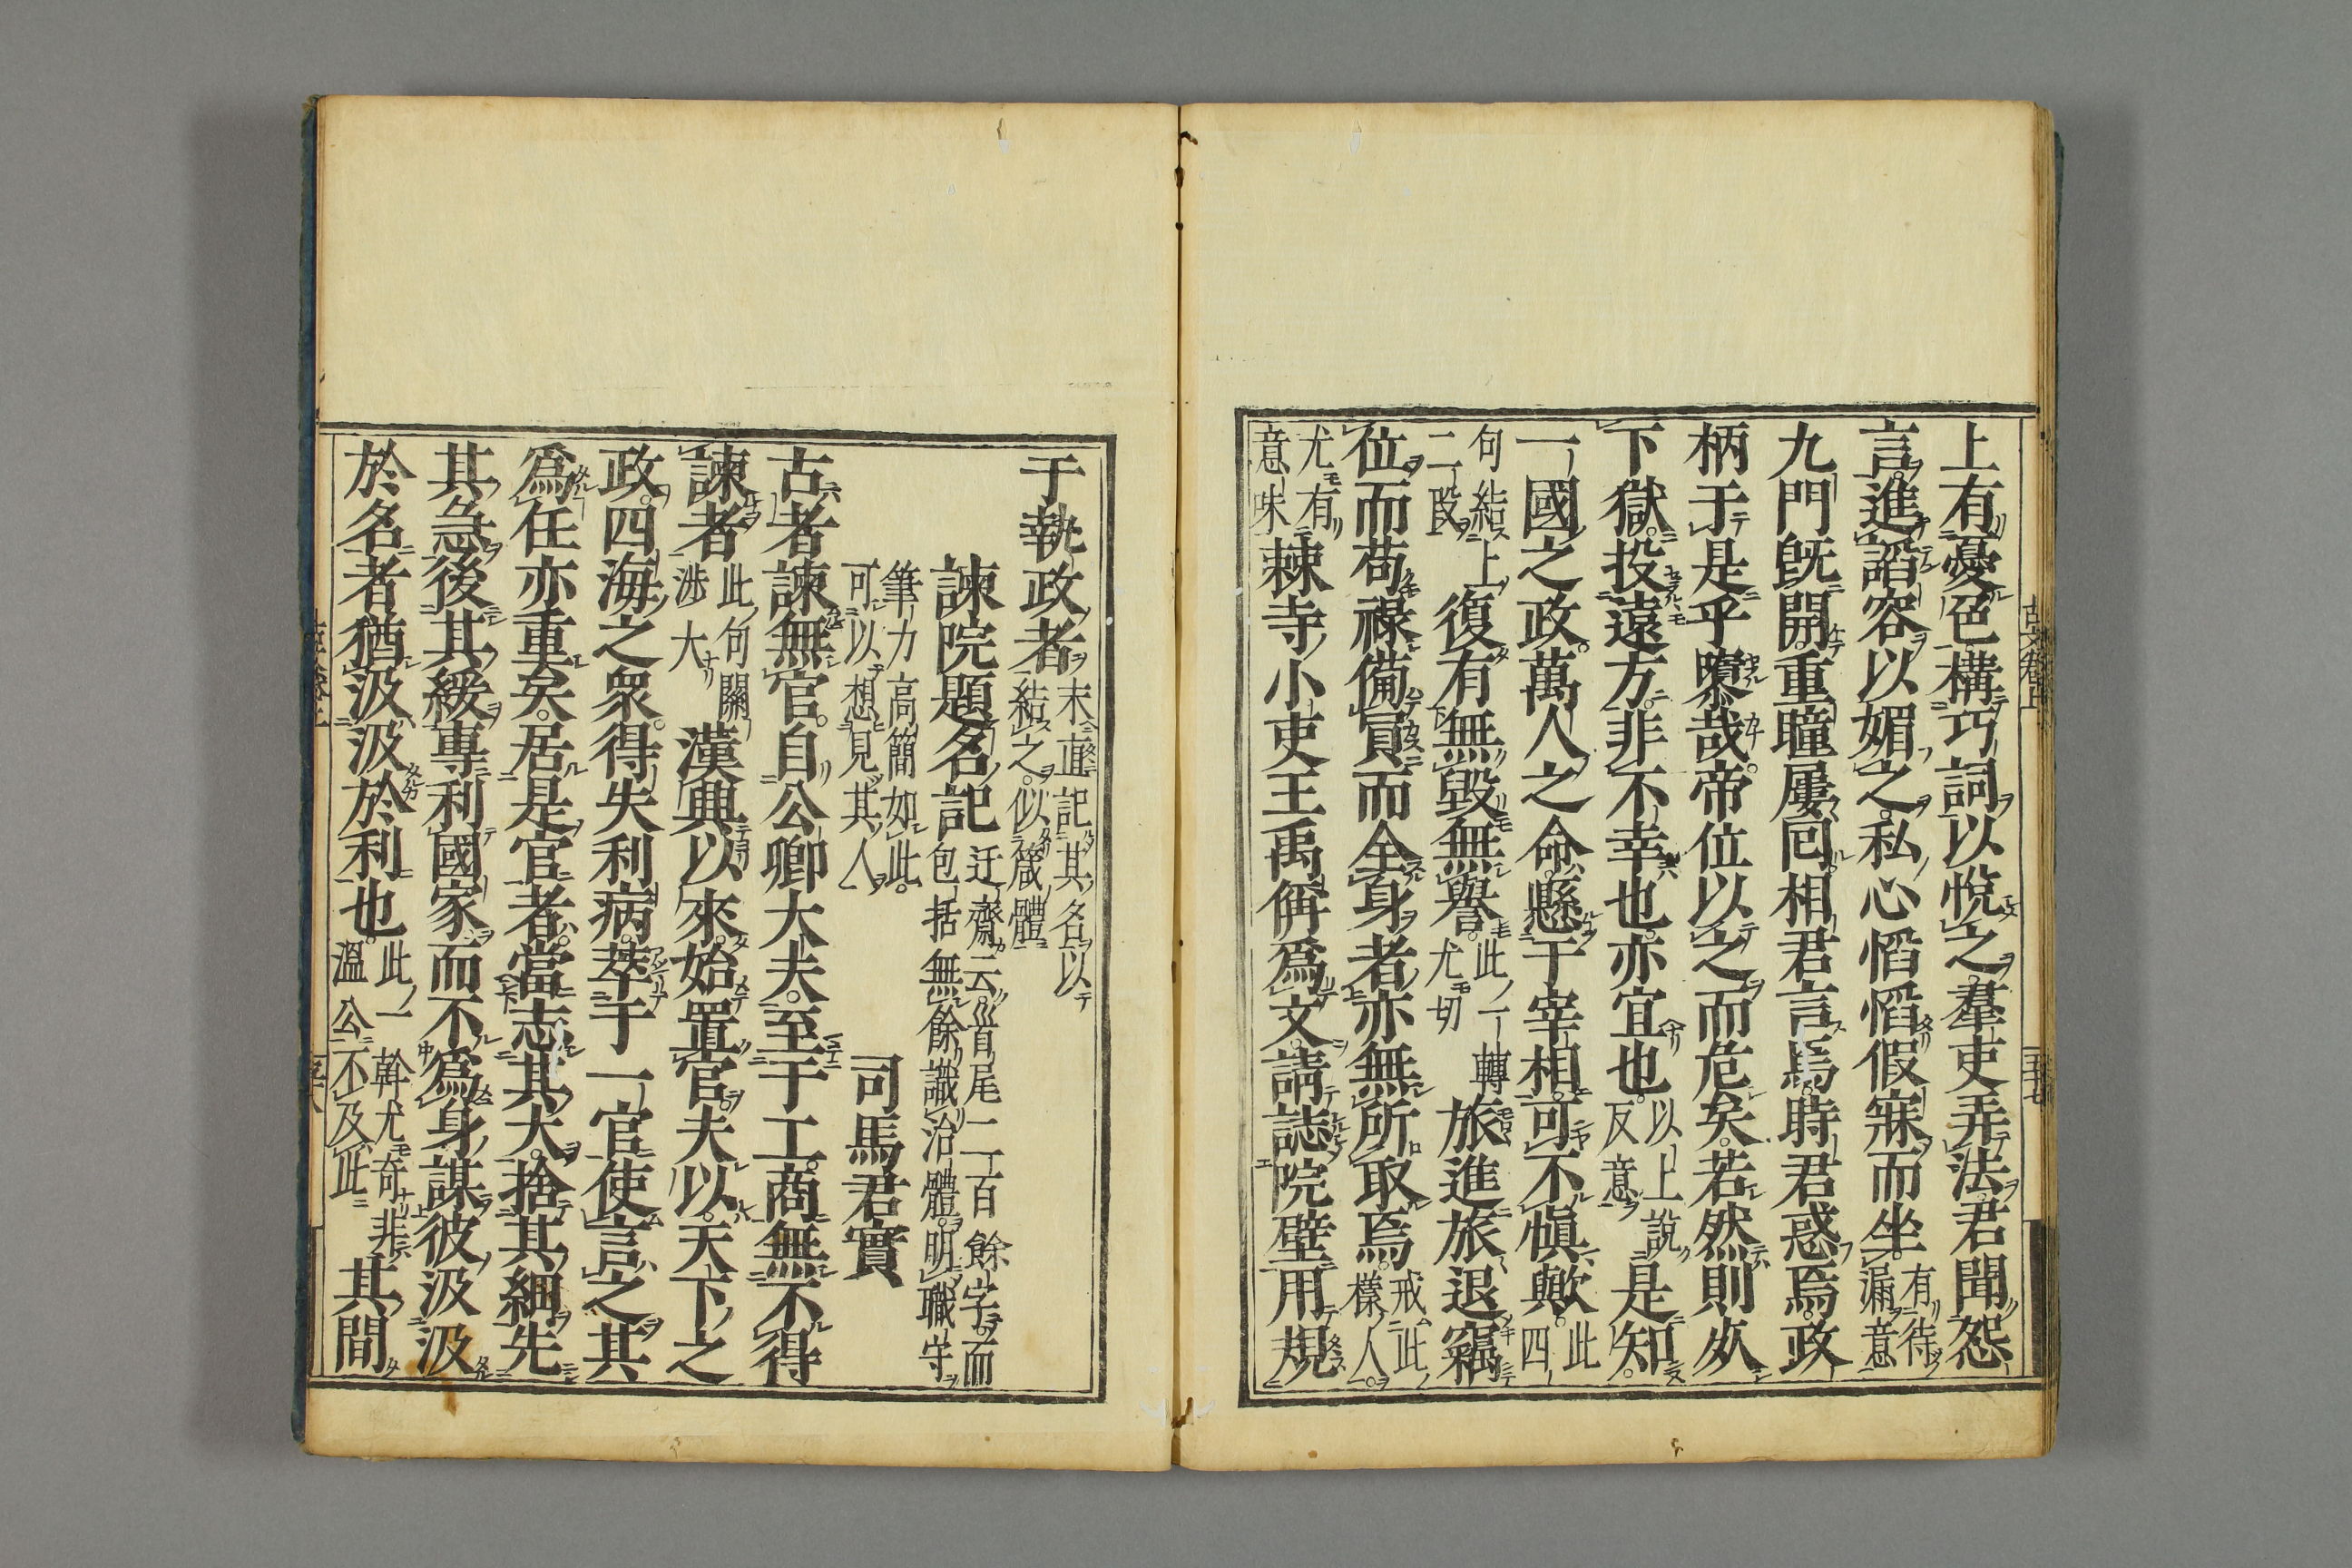 上有憂色構巧詞以悅之羣吏弄法君聞怨
言進謟容以媚之私心慆慆假寐而坐有待漏意
九門旣開重瞳屢囘相君言焉時君惑焉政
柄于是乎隳哉帝位以之而危矣若然則死
下獄投遠方非不幸也亦宜也以上說反意是知
一國之政萬人之命懸于宰相可不愼歟此四
句結上二段復有無毀無譽此一轉尤切旅進旅退竊
位而苟祿備員而全身者亦無所取焉戒此樣人
尤有意味棘寺小吏王禹偁爲文請誌院壁用規
于執政者末直記其名以結之似箴體
諫院題名記迂齋云首尾二百餘字而包括無餘識治體明職守
筆力高簡如此可以想見其人司馬君實
古者諫無官自公卿大夫至于工商無不得
諫者此句關涉大漢興以來始置官夫以天下之
政四海之衆得失利病萃于一官使言之其
爲任亦重矣居是官者當志其大捨其細先
其急後其緩專利國家而不爲身謀彼汲汲
於名者猶汲汲於利也此一斡尤奇非溫公不及此其間